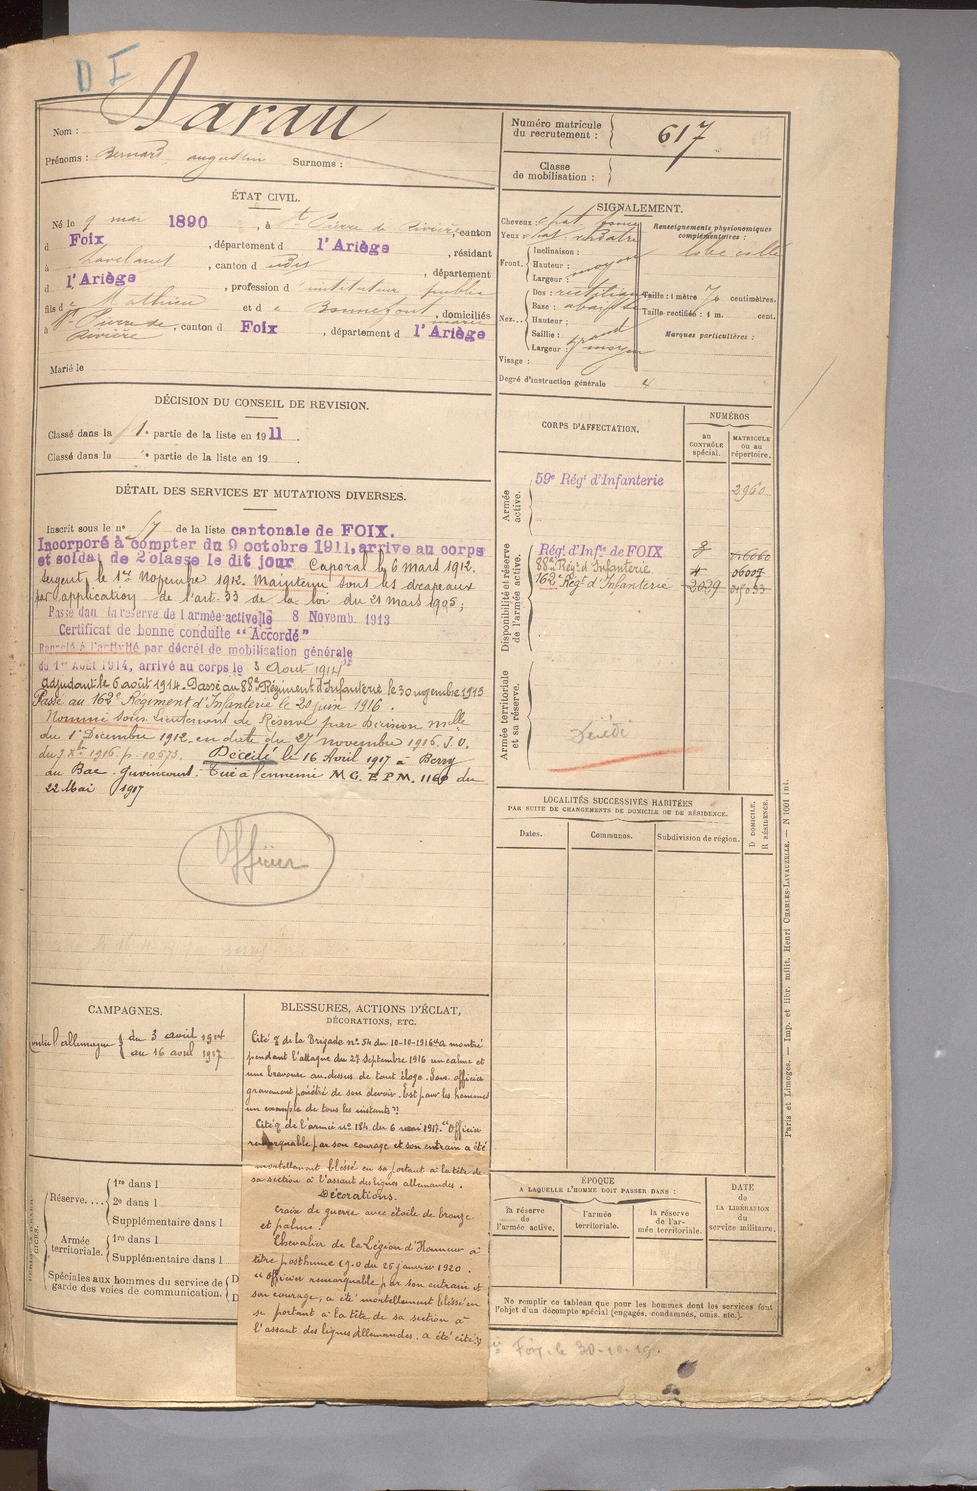 D I
Nom : Darau
Prénoms : Bernard augustin Surnoms :
Numéro matricule
du recrutement : 617
Classe
de mobilisation :
ÉTAT CIVIL.
Né le 9 mai 1890, à St Pierre de Rivière, canton
d Foix, département d l'Ariège, résidant
à Lavelanet, canton d udit, département
d l'Ariège, profession d' instituteur public
fils de Mathieu et de Bonnefont, domiciliés
à St Pierre de Rivière, canton d Foix, département d l'Ariège
Marié le
SIGNALEMENT.
Cheveux : chat
Yeux :
Front. Inclinaison :
Hauteur : moyen
Largeur :
Nez. Dos : rectiligne
Base : abaissée
Hauteur :
Saillie :
Largeur : moyen
Visage :
Renseignements physionomiques
complémentaires :
Taille : 1 mètre 70 centimètres.
Taille rectifiée : 1 m. cent.
Marques particulières :
Degré d'instruction générale 4
DÉCISION DU CONSEIL DE REVISION.
Classé dans la 1e partie de la liste en 1911
Classé dans la e partie de la liste en 19
DÉTAIL DES SERVICES ET MUTATIONS DIVERSES.
Inscrit sous le n° 57 de la liste cantonale de FOIX.
Incorporé à compter du 9 octobre 1911, arrive au corps
et soldat de 2e classe le dit jour Caporal le 6 mars 1912.
Sergent le 1er Novembre 1912. Maintenu sous les drapeaux
par application de l'art. 33 de la loi du 21 mars 1905;
Passé dans la réserve de l'armée active le 8 Novemb. 1913
Certificat de bonne conduite "Accordé"
Rappelé à l'activité par décret de mobilisation générale
du 1er Août 1914, arrivé au corps le 3 Août 1914
Adjudant le 6 août 1914. Passé au 88e Régiment d'Infanterie le 30 novembre 1915
Passé au 162e Régiment d'Infanterie le 20 juin 1916.
Nommé sous-lieutenant de Réserve par décision mlle
du 1er Décembre 1912 en date du 27 novembre 1916 J.O.
du 7 Xbre 1916 p. 10573. Décédé le 16 Avril 1917 à Berry
au Bac. Guincourt. Tué à l'ennemi M.G.E.P.M. 1160 du
22 Mai 1917
Officier
CORPS D'AFFECTATION.
NUMÉROS
au
CONTRÔLE
spécial.
MATRICULE
ou au
répertoire.
Armée
active.
59e Régt d'Infanterie 2960
Disponibilité et réserve
de l'armée active.
Régt d'Infie de FOIX
88e Régt d'Infanterie 06007
162e Régt d'Infanterie 2029
Armée territoriale
et sa réserve.
Décédé
LOCALITÉS SUCCESSIVES HABITÉES
PAR SUITE DE CHANGEMENTS DE DOMICILE OU DE RÉSIDENCE.
Dates. Communes. Subdivision de région.
D DOMICILE.
R RÉSIDENCE.
CAMPAGNES.
Contre l'allemagne du 3 août 1914
au 16 avril 1917
BLESSURES, ACTIONS D'ÉCLAT,
DÉCORATIONS, ETC.
Cité o de la Brigade n° 54 du 10-10-1916 "a montré
pendant l'attaque du 27 Septembre 1916 un calme et
une bravoure au-dessus de tout éloge. Sous officier
gravement pénétré de son devoir. Est pour les hommes
un exemple de tous les instants"
Cité o de l'armée n° 184 du 6 mai 1917. "Officier
remarquable par son courage et son entrain a été
mortellement bléssé en se portant à la tête de
sa section à l'assaut des lignes allemandes.
Décorations.
Croix de guerre avec étoile de bronze
et palme.
Chevalier de la Légion d'Honneur à
titre posthume J.O du 26 janvier 1920.
"Officier remarquable par son entrain et
son courage, a été mortellement bléssé en
se portant à la tête de sa section à
l'assaut des lignes Allemandes. a été cité."
Réserve.... 1re dans l
2e dans l
Supplémentaire dans l
Armée
territoriale. 1re dans l
Supplémentaire dans l
Spéciales aux hommes du service de
garde des voies de communication. D
D
ÉPOQUE
A LAQUELLE L'HOMME DOIT PASSER DANS :
la réserve
de
l'armée active.
l'armée
territoriale.
la réserve
de l'ar-
mée territoriale.
DATE
de
LA LIBÉRATION
du
service militaire.
Ne remplir ce tableau que pour les hommes dont les services font
l'objet d'un décompte spécial (engagés, condamnés, omis, etc.).
Foix, le 30-10-19.
Paris et Limoges. — Imp. et libr. milit. Henri CHARLES-LAVAUZELLE. — N 1001 int.